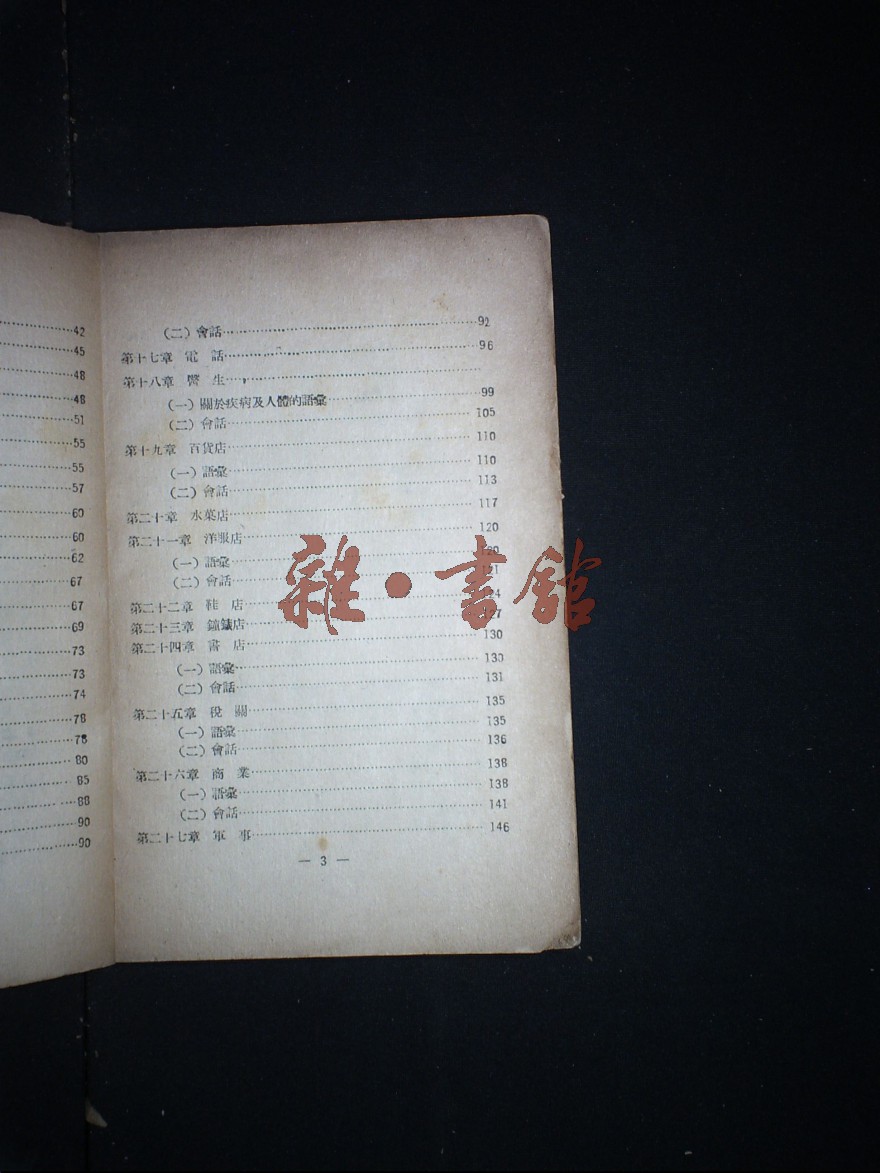 42
45
48
48
51
55
55
57
60
60
62
67
67
69
73
73
74
78
78
80
85
88
90
90
(二)會話 92
第十七章 電話 96
第十八章 醫生
(一)關於疾病及人體的語彙 99
(二)會話 105
第十九章 百貨店 110
(一)語彙 110
(二)會話 113
第二十章 水菓店 117
第二十一章 洋服店 120
(一)語彙 120
(二)會話 121
第二十二章 鞋店 124
第二十三章 鐘錶店 127
第二十四章 書店 130
(一)語彙 130
(二)會話 131
第二十五章 稅關 135
(一)語彙 135
(二)會話 136
第二十六章 商業 138
(一)語彙 138
(二)會話 141
第二十七章 軍事 146
— 3 —
雜·書館